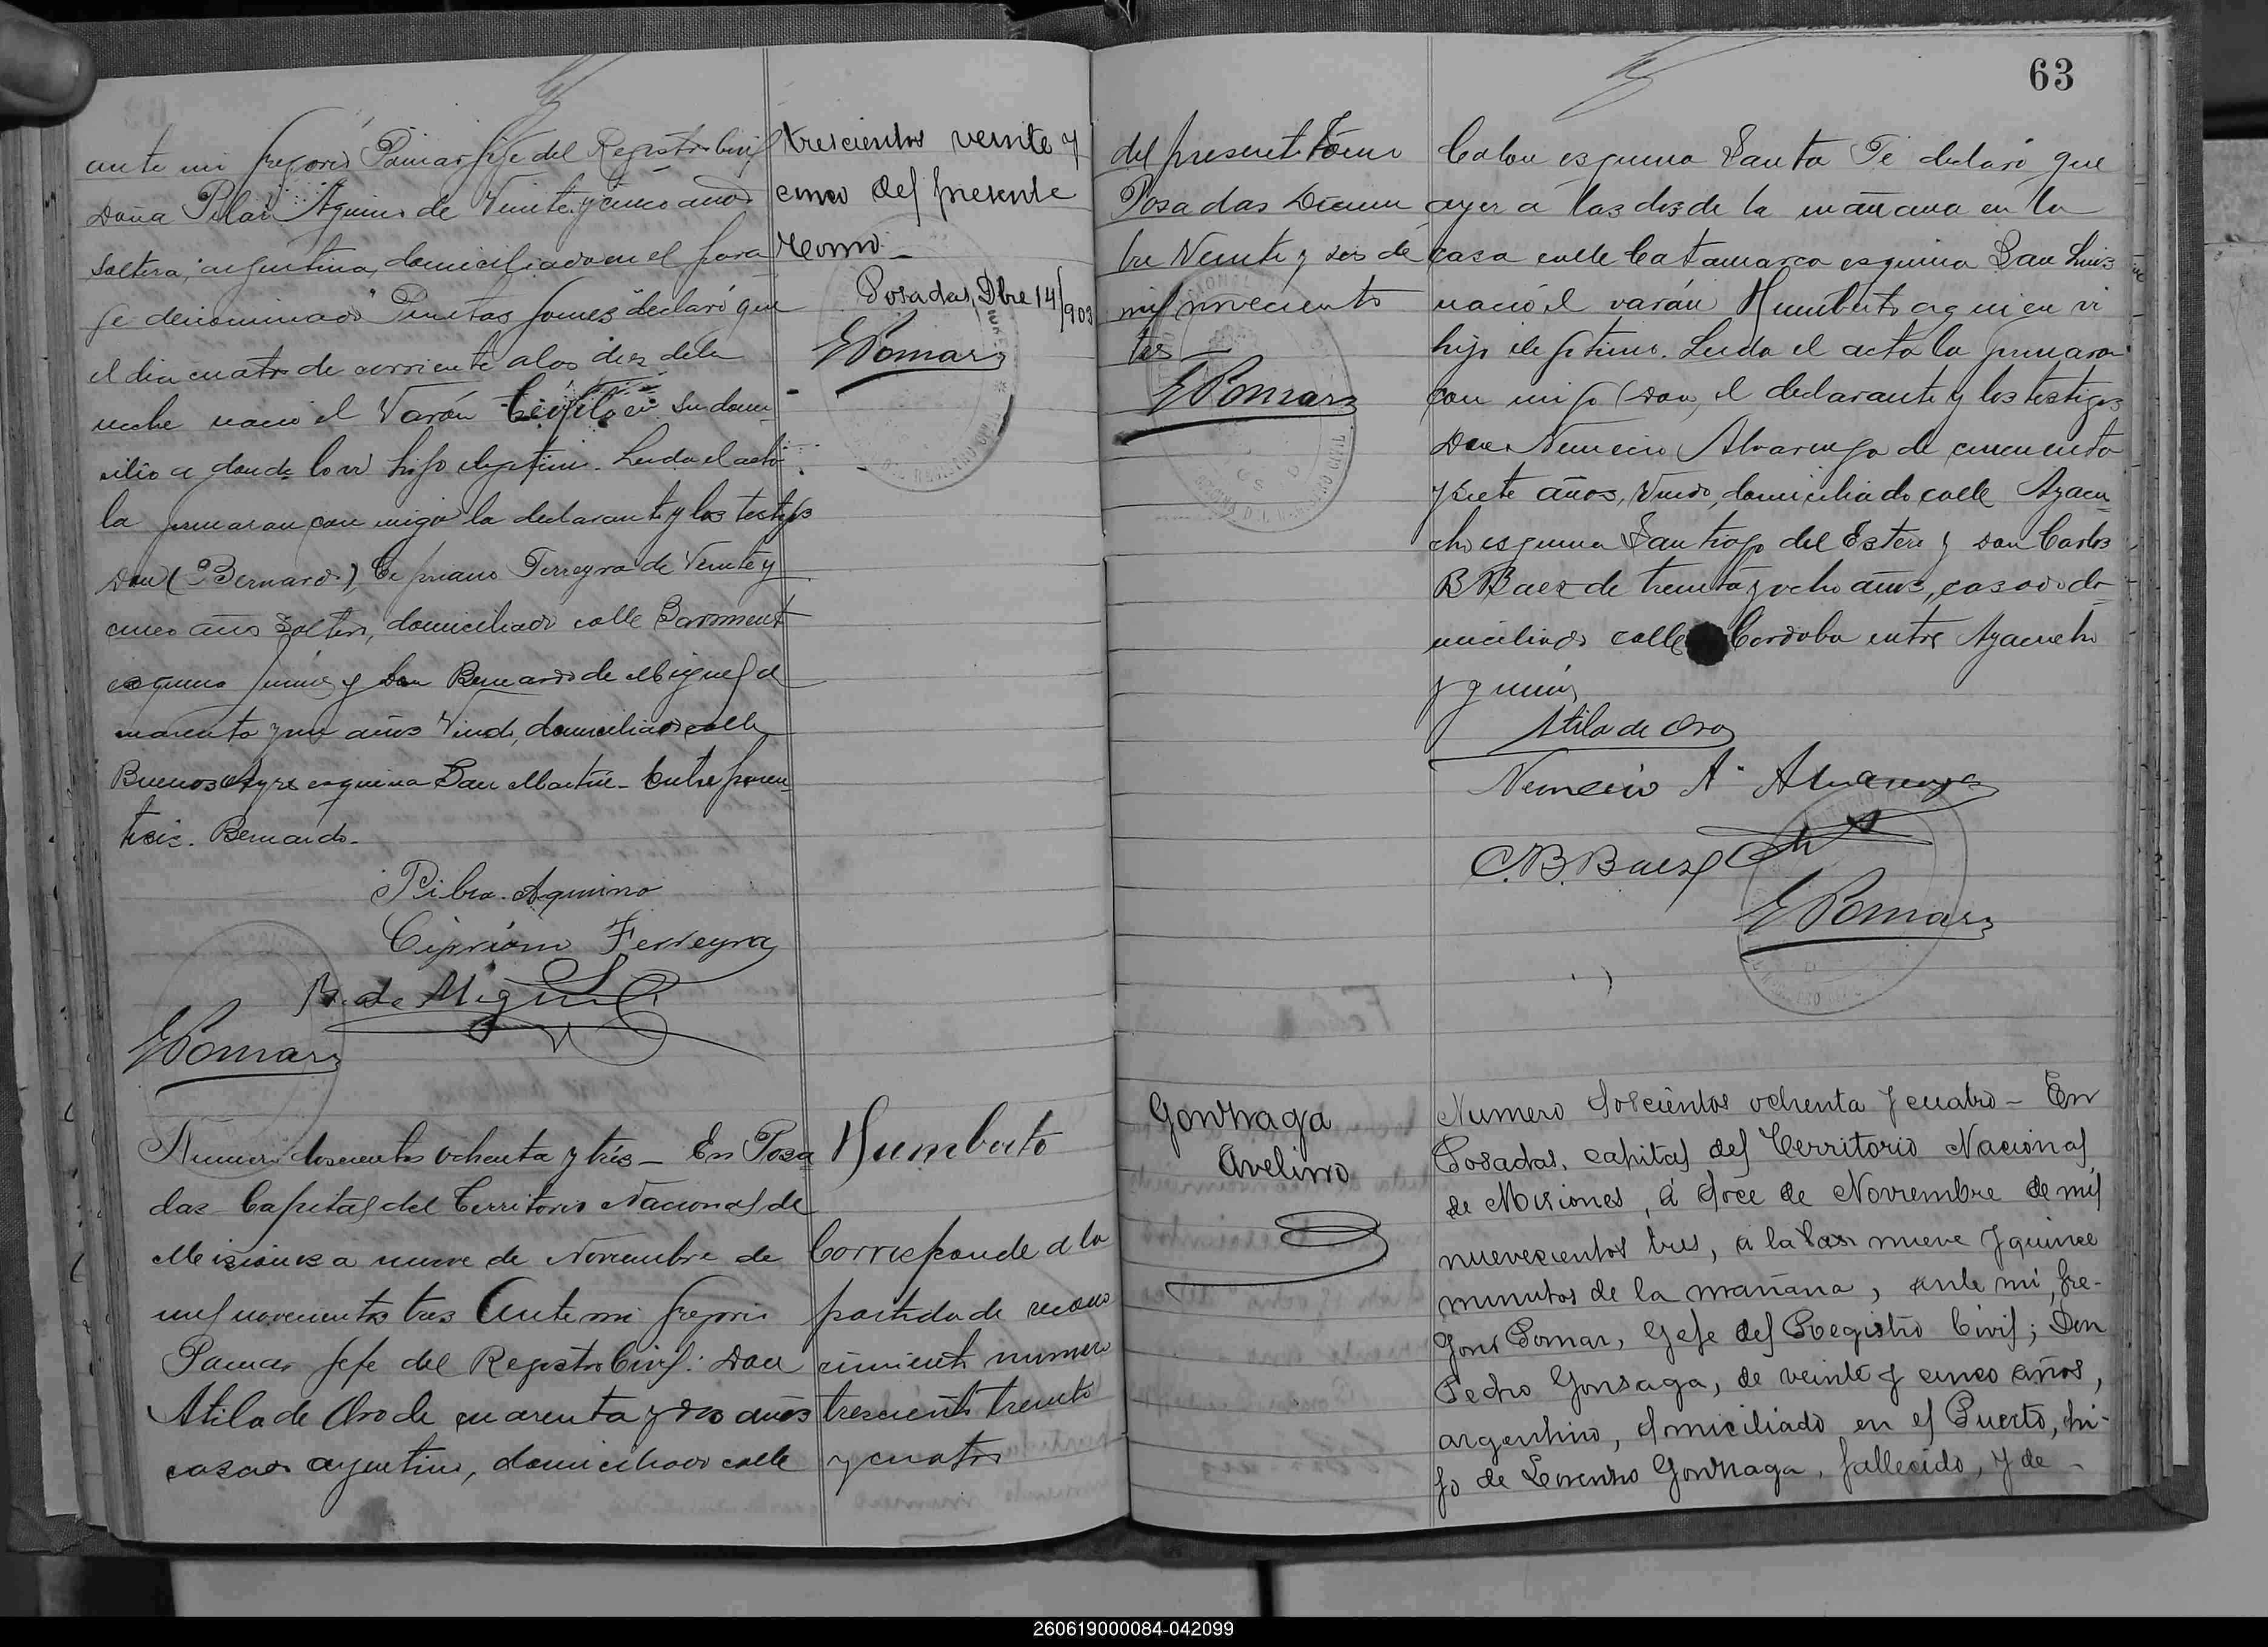 ante mi Gregorio Pomar Gefe del Registro Civil
Doña Pilar Aquino de Veinte y cinco años
Soltera, argentina, domiciliada en el para
ge denominado "Puntas Gomes" declaró que
el dia cuatro de corriente a las diez de la
noche nació el Varón Teófilo en su domi
cilio a donde lo vi hijo ilegitimo. Leida el acta
la firmaron con migo la declarante y los testigos
Don (Bernardo) Cipriano Ferreyra de Veinte y
cinco años Soltero, domiciliado calle Sarmiento
esquina Junin y Don Bernardo de Miguel de
cuarenta y un años Viudo, domiciliado calle
Buenos Ayres esquina San Martin - Entre paren
tesis. Bernardo.
Aquino
Cipriano Ferreyra
B. de Miguel
G Pomar
trescientos veinte y
cinco del presente
tomo -
Posadas, Dbre 14/903
G Pomar
Numero doscientos ochenta y tres - En Posa
das Capital del Territorio Nacional de
Misiones a nueve de Noviembre de
mil novecientos tres Ante mi Gregorio
Pomar Gefe del Registro Civil: Don
Atila de Oro de cuarenta y dos años
casado argentino, domiciliado calle
Humberto
Corresponde a la
partida de recono
cimiento numero
trescientos treinta
y cuatro
63
del presente Tomo
Posadas Diciem
bre Veinte y seis de
mil novecientos
tres -
G Pomar
Colon esquina Santa Fé declaró que
ayer á las dos de la mañana en la
casa calle Catamarca esquina San Luis
nació el varón Humberto a quien vi
hijo ilegitimo. Leida el acta la firmaron
con migo (Don, el declarante y los testigos
Don Nemecio Alvarenga de cincuenta
y siete años, Viudo, domiciliado calle Ayacu
cho esquina Santiago del Estero y Don Carlos
B Baez de treinta y ocho años, casado do
miciliado calle Cordoba entre Ayacucho
y Junin
Atila de Oro
Nemecio A. Alvarenga
C. B. Baez
G Pomar
Gonzaga
Avelino
Numero doscientos ochenta y cuatro - En
Posadas, capital del Territorio Nacional
de Misiones, á doce de Noviembre de mil
nuevecientos tres, a la las nueve y quince
minutos de la mañana, ante mi, Gre-
gorio Pomar, Gefe del Registro Civil; Don
Pedro Gonzaga, de veinte y cinco años,
argentino, domiciliado en el Puerto, hi-
jo de Lorenzo Gonzaga, fallecido, y de -
260619000084-042099